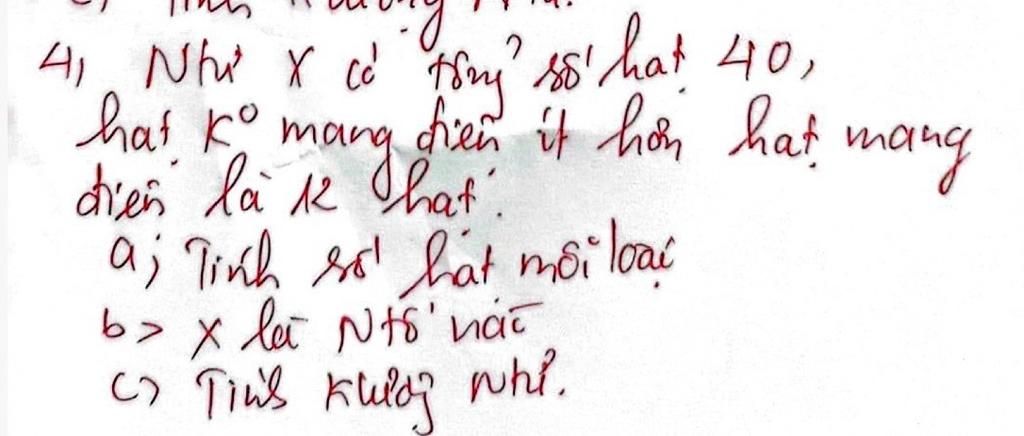 4, Ntử X có tổng số hạt 40,
hạt k° mang điện ít hơn hạt mang
điện là 12 hạt.
a; Tính số hạt mỗi loại
b> X là Ntố nào
c> Tính klượng Ntử.